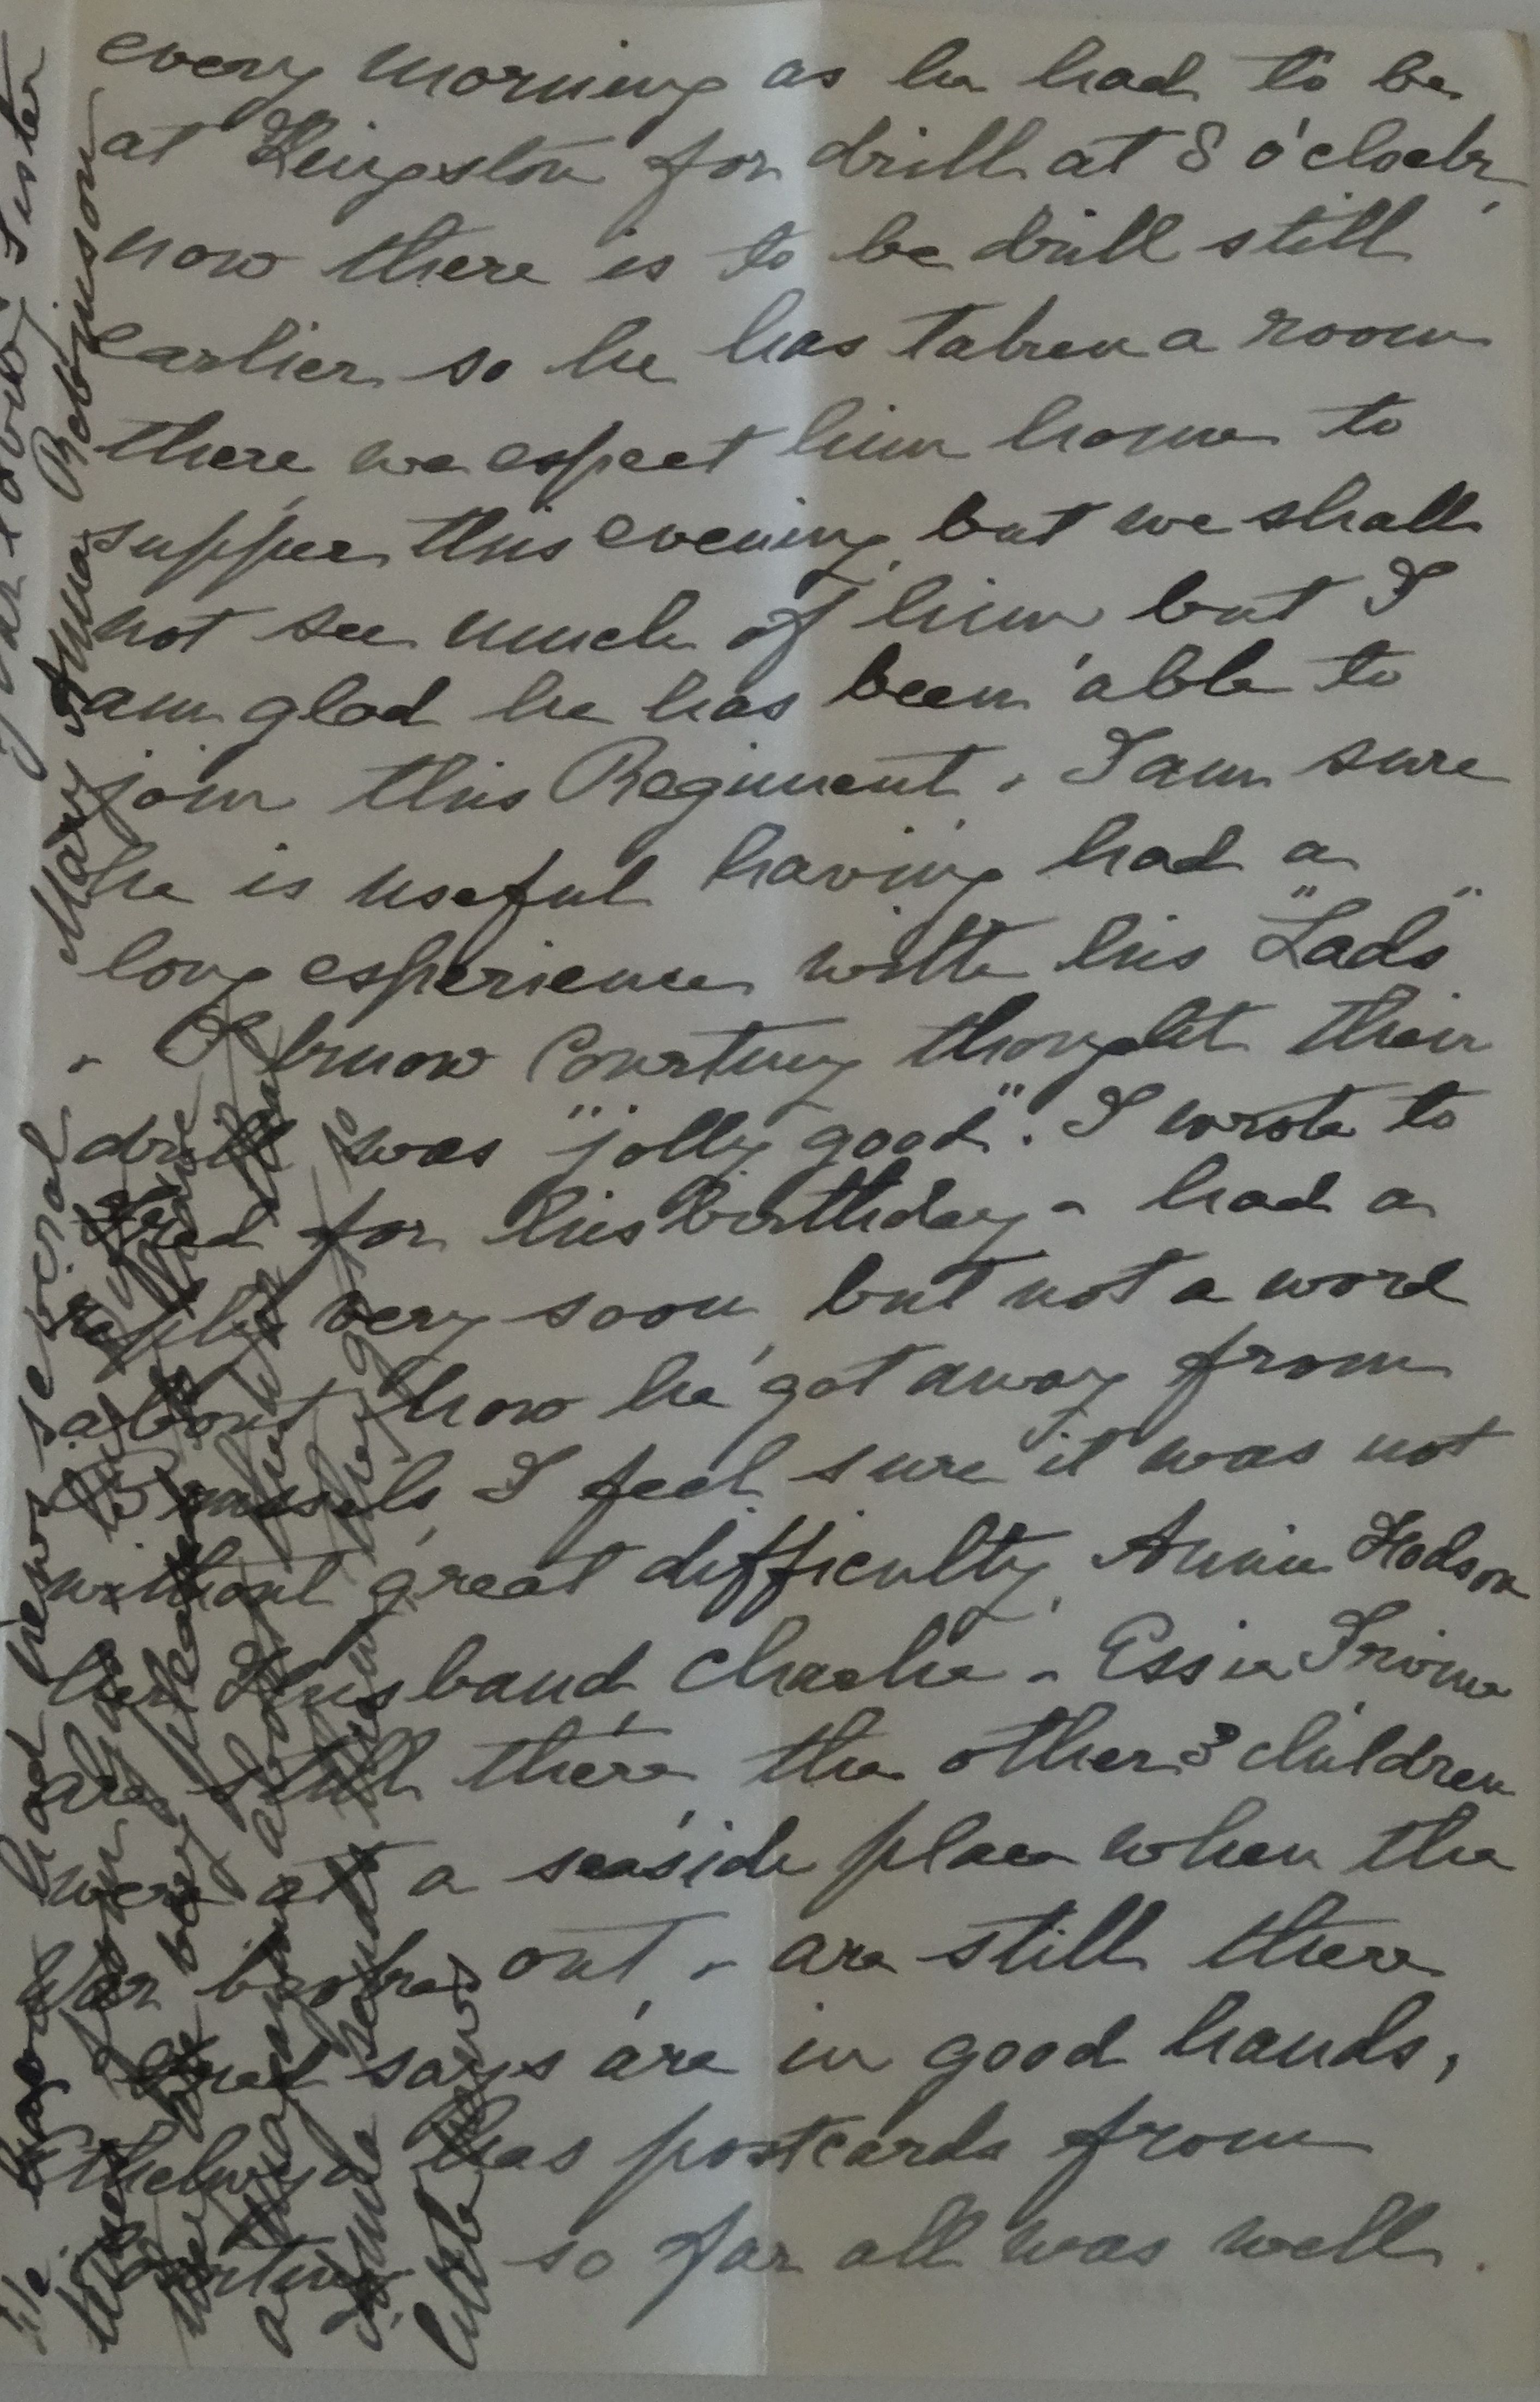 every morning as he had to be
at Kingston for drill at 8 o'clock,
now there is to be drill still
earlier so he has taken a room
there we expect him home to
supper this evening, but we shall
not see much of him but I
am glad he has been able to
join this Regiment & I am sure
he is useful having had a
long experience with his "Lads"
& I know Courtney thought their
drill was "jolly good". I wrote to
Fred for his birthday & had a
reply very soon, but not a word
about how he got away from
Brussels, I feel sure it was not
without great difficulty, Annie Hodson
her Husband Charlie & Essie
are still there, the other 3 children
were at a seaside place when the
War broke out & are still there
Fred says are in good hands,
has postcards from
Courtney so far all was well.
We have had news several
from
little news
your loving Sister
Mary Anna Robinson